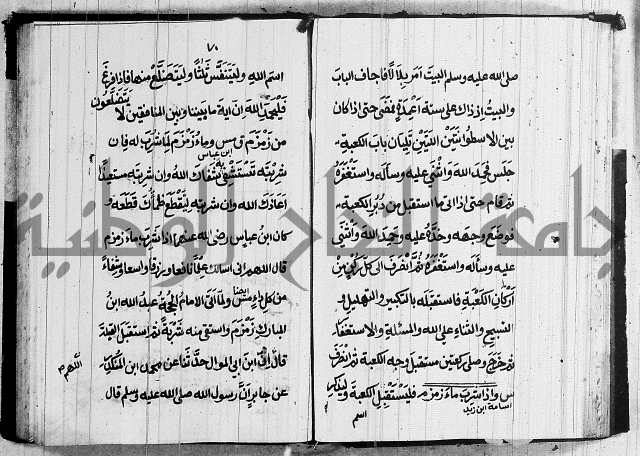 صلى الله عليه وسلم البيت امر بلالا فاجاف الباب
والبيت اذ ذاك على ستة اعمدة فمضى حتى اذا كان
بين الاسطوانتين اللتين تليان باب الكعبة
جلس فحمد الله واثنى عليه وسأله واستغفره
ثم قام حتى اذا اتى ما استقبل من دبر الكعبة
فوضع وجهه وخده عليه وحمد الله واثنى
عليه وسأله واستغفره ثم انصرف الى كل ركن من
اركان الكعبة فاستقبله بالتكبير والتهليل و
التسبيح والثناء على الله والمسئلة والاستغفار
ثم خرج وصلى ركعتين مستقبل وجه الكعبة ثم انصرف
س واذا شرب ماء زمزم فليستقبل الكعبة وليذكر
اسامة ابن زيد
اسم
٧٠
اسم الله وليتنفس ثلثا وليتضلع منها فاذا فرغ
فليحمد الله ان اية ما بيننا وبين المنافقين لا يتضلعون
من زمزم ق مس وماء زمزم لما شرب له فان
ابن عباس
شربته تستشفى به شفاك الله وان شربته مستعيذا
اعاذك الله وان شربته ليقطع ظمأك قطعه
كان ابن عباس رضى الله عنهم اذا شرب ماء زمزم
قال اللهم انى اسالك علما نافعا ورزقا واسعا وشفاء
من كل داء مس ايضا ولما اتى الامام الحجة عبد الله ابن
المبارك زمزم واستقى منه شربة ثم استقبل القبلة
قال ان ابن ابى الموال حدثنا عن محمد ابن المنكدر
عن جابر ان رسول الله صلى الله عليه وسلم قال
اللهم
جامعة النجاح الوطنية